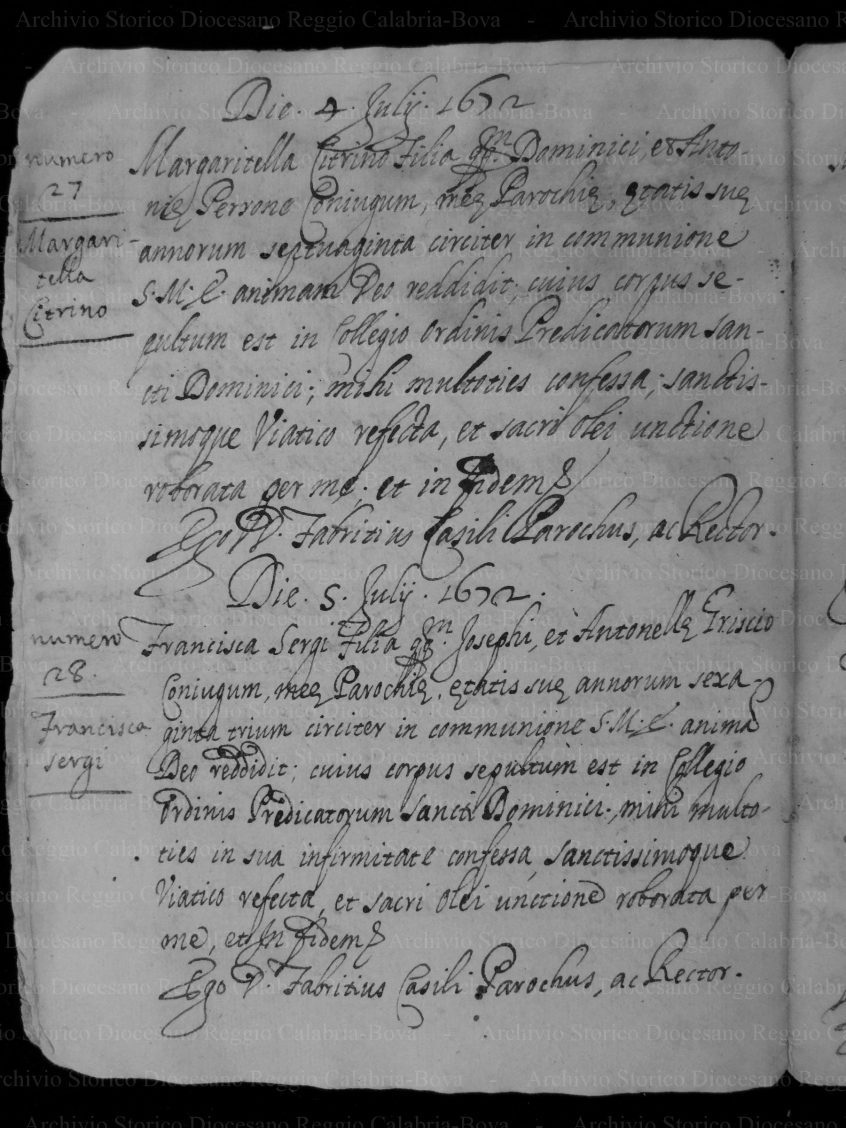 Die. 4. Julij. 1672
numero
27
Margari-
tella
Citrino
Margaritella Citrino Filia qm. Dominici, et Anto-
nię Perrone Coniugum, meę Parochię, ętatis suę
annorum septuaginta circiter in communione
S. M. E. animam Deo reddidit; cuius corpus se-
pultum est in Collegio Ordinis Predicatorum San-
cti Dominici; mihi multoties confessa; sanctis-
simoque Viatico refecta, et sacri Olei unctione
roborata per me. et in fidem
Ego D. Fabritius Casili Parochus, ac Rector.
Die. 5. Julij. 1672.
numero
28.
Francisca
sergi
Francisca Sergi Filia qm. Josephi, et Antonellę Griscio
Coniugum, meę Parochię, ętatis suę annorum sexa-
ginta trium circiter in communione S. M. E. anima
Deo reddidit; cuius corpus sepultum est in Collegio
Ordinis Predicatorum Sancti Dominici., mihi multo-
ties in sua infirmitate confessa, Sanctissimoque
Viatico refecta, et sacri Olei unctione roborata per
me, et In fidem
Ego D. Fabritius Casili Parochus, ac Rector.
Archivio Storico Diocesano Reggio Calabria-Bova